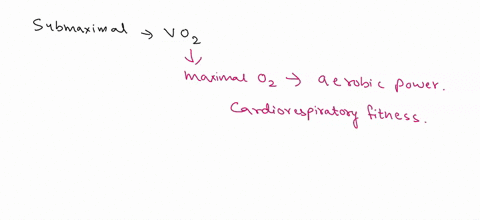 Submaximal → VO₂
↓
maximal O₂ → aerobic power.
Cardiorespiratory fitness.